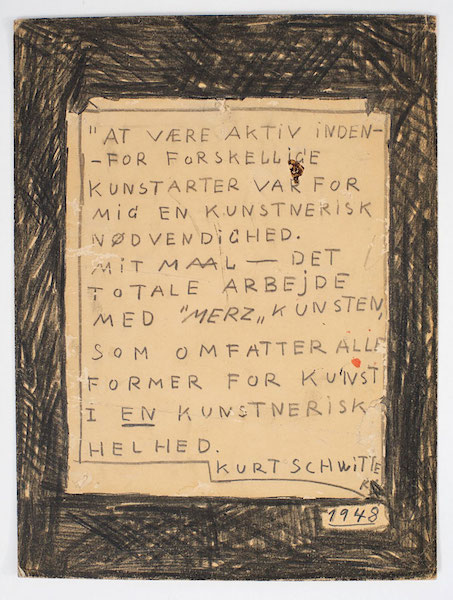 "AT VÆRE AKTIV INDEN-
-FOR FORSKELLIGE
KUNSTARTER VAR FOR
MIG EN KUNSTNERISK
NØDVENDIGHED.
MIT MAAL — DET
TOTALE ARBEJDE
MED "MERZ„ KUNSTEN,
SOM OMFATTER ALLE
FORMER FOR KUNST
I EN KUNSTNERISK
HELHED.
KURT SCHWITTE
RS
1948